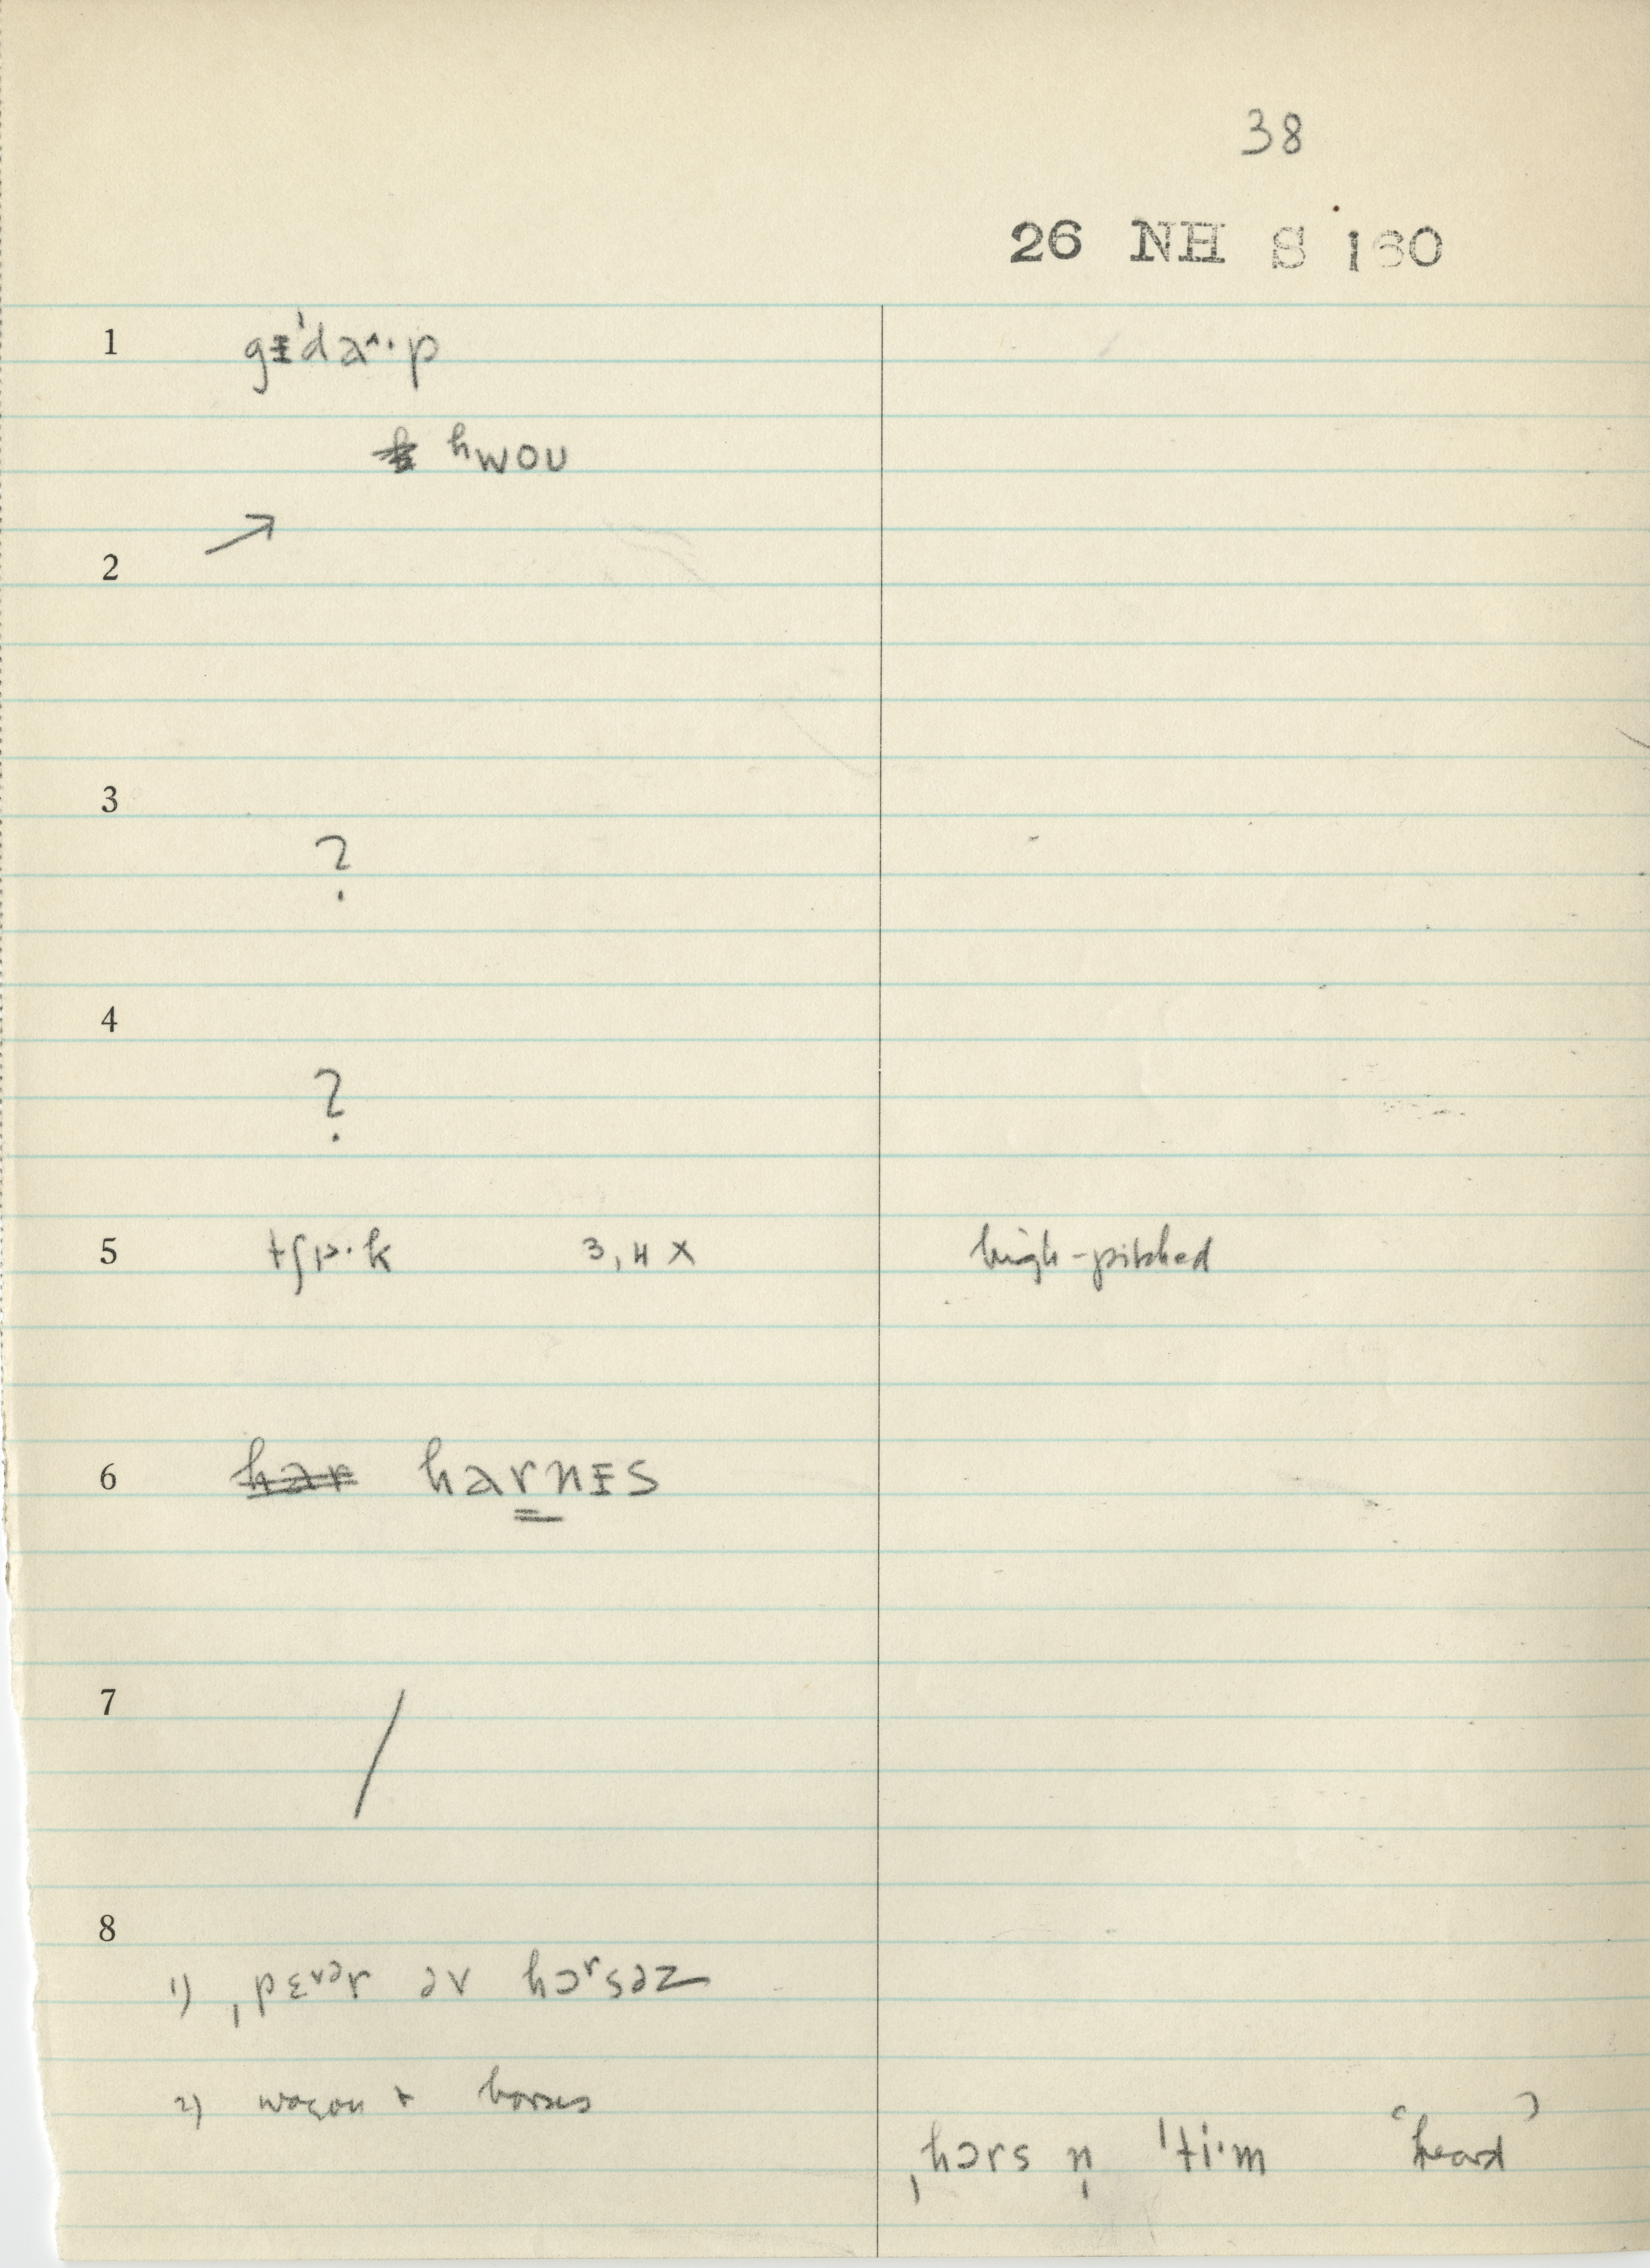 38
26 NH S 160
1 gᵻˈdaˑ^p
hwoʊ
2 →
3
?
4
?
5 tʃɒ·k 3, 4 x high-pitched
6 har harnᵻs
7 /
8
1) ˌpɛᵊr əv hɔrsəz
2) wagon + horses
ˌhɔrs n̩ ˈti·m ‘heard’